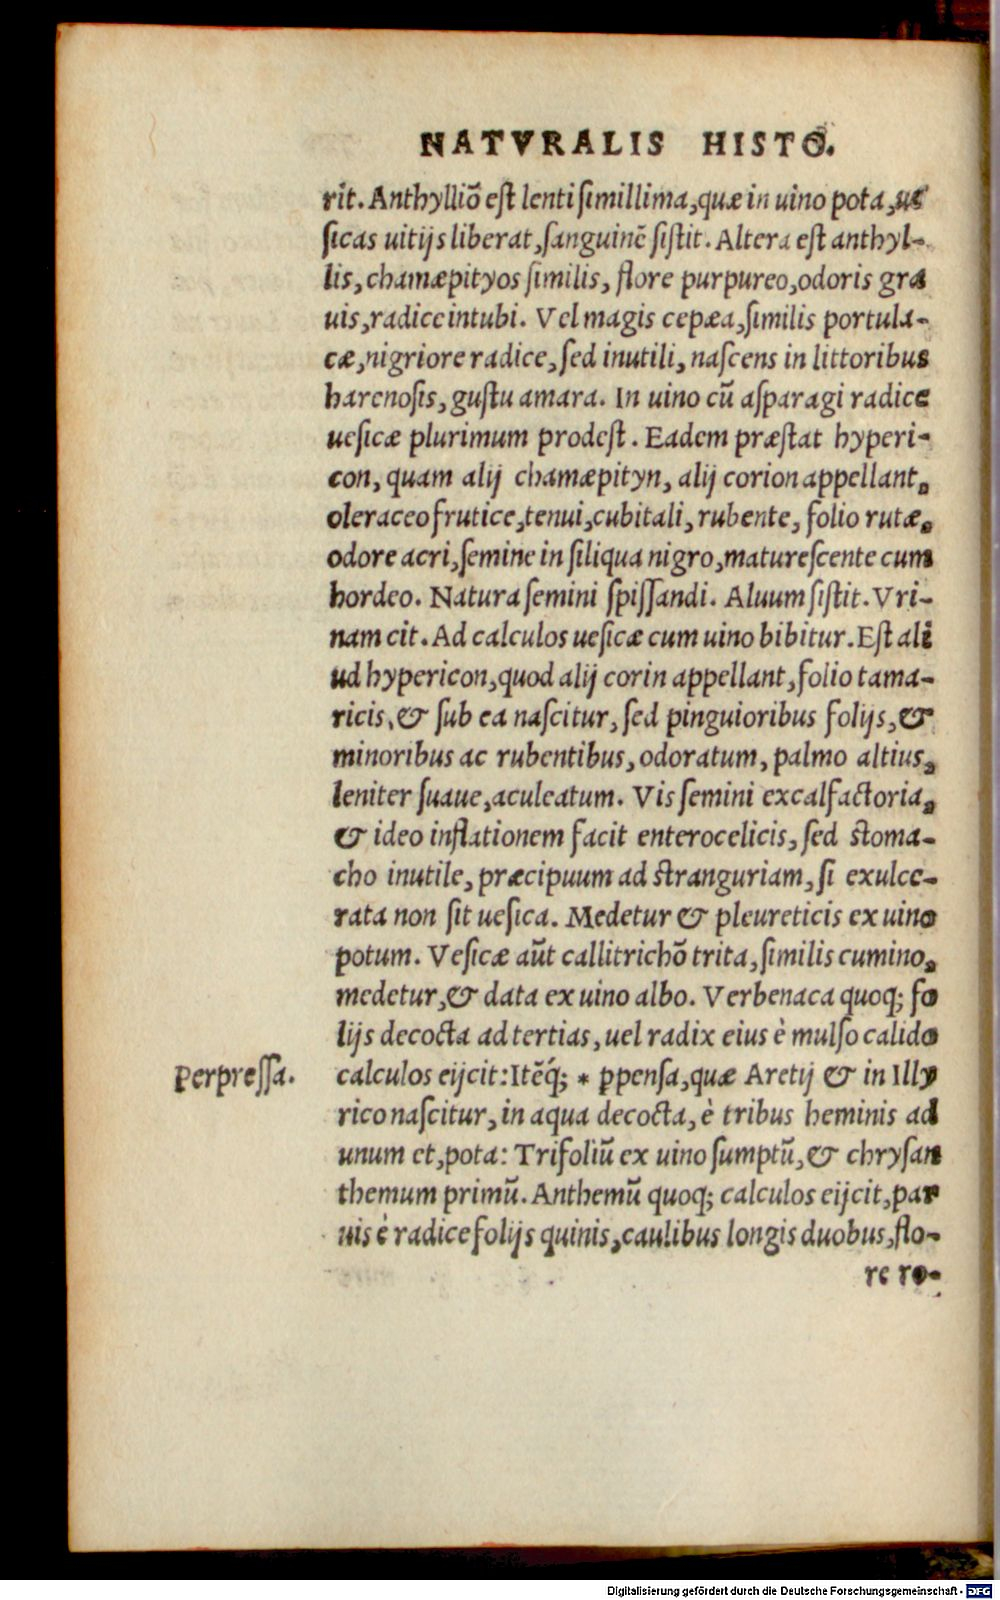 NATVRALIS HISTO.
rit. Anthylliõ eſt lenti ſimillima, quæ in uino pota, ue
ſicas uitijs liberat, ſanguinẽ ſiſtit. Altera eſt anthyl-
lis, chamæpityos ſimilis, flore purpureo, odoris gra
uis, radice intubi. Vel magis cepæa, ſimilis portula-
cæ, nigriore radice, ſed inutili, naſcens in littoribus
harenoſis, guſtu amara. In uino cũ aſparagi radice
ueſicæ plurimum prodeſt. Eadem præſtat hyperi-
con, quam alij chamæpityn, alij corion appellant,
oleraceo frutice, tenui, cubitali, rubente, folio rutæ,
odore acri, ſemine in ſiliqua nigro, matureſcente cum
hordeo. Natura ſemini ſpiſſandi. Aluum ſiſtit. Vri-
nam cit. Ad calculos ueſicæ cum uino bibitur. Eſt ali
ud hypericon, quod alij corin appellant, folio tama-
ricis, & ſub ea naſcitur, ſed pinguioribus folijs, &
minoribus ac rubentibus, odoratum, palmo altius,
leniter ſuaue, aculeatum. Vis ſemini excalfactoria,
& ideo inflationem facit enterocelicis, ſed ſtoma-
cho inutile, præcipuum ad ſtranguriam, ſi exulce-
rata non ſit ueſica. Medetur & pleureticis ex uino
potum. Veſicæ aũt callitrichõ trita, ſimilis cumino,
medetur, & data ex uino albo. Verbenaca quoq; fo
lijs decocta ad tertias, uel radix eius è mulſo calido
Perpreſſa.
calculos eijcit: Itẽq́; * ꝑpenſa, quæ Aretij & in Illy
rico naſcitur, in aqua decocta, è tribus heminis ad
unum et, pota: Trifoliũ ex uino ſumptũ, & chryſan
themum primũ. Anthemũ quoq; calculos eijcit, par
uis è radice folijs quinis, caulibus longis duobus, flo-
re ro-
Digitalisierung gefördert durch die Deutsche Forschungsgemeinschaft - DFG